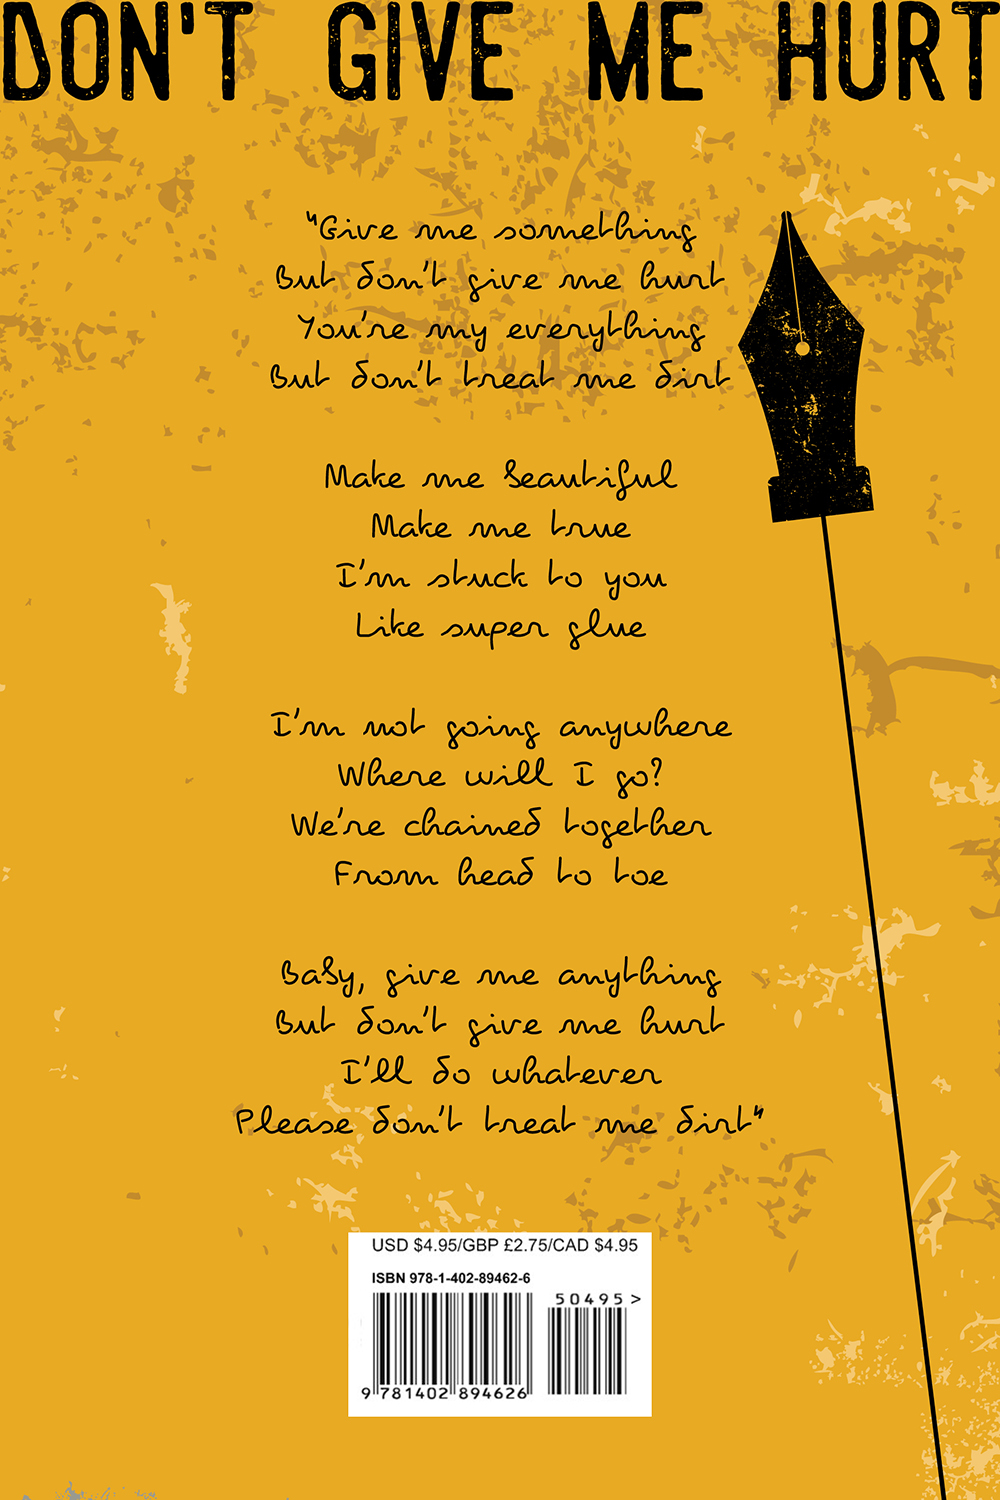 DON'T GIVE ME HURT
"Give me something
But don't give me hurt
You're my everything
But don't treat me dirt
Make me beautiful
Make me true
I'm stuck to you
Like super glue
I'm not going anywhere
Where will I go?
We're chained together
From head to toe
Baby, give me anything
But don't give me hurt
I'll do whatever
Please don't treat me dirt"
USD $4.95/GBP £2.75/CAD $4.95
ISBN 978-1-402-89462-6
50495>
9 781402 894626